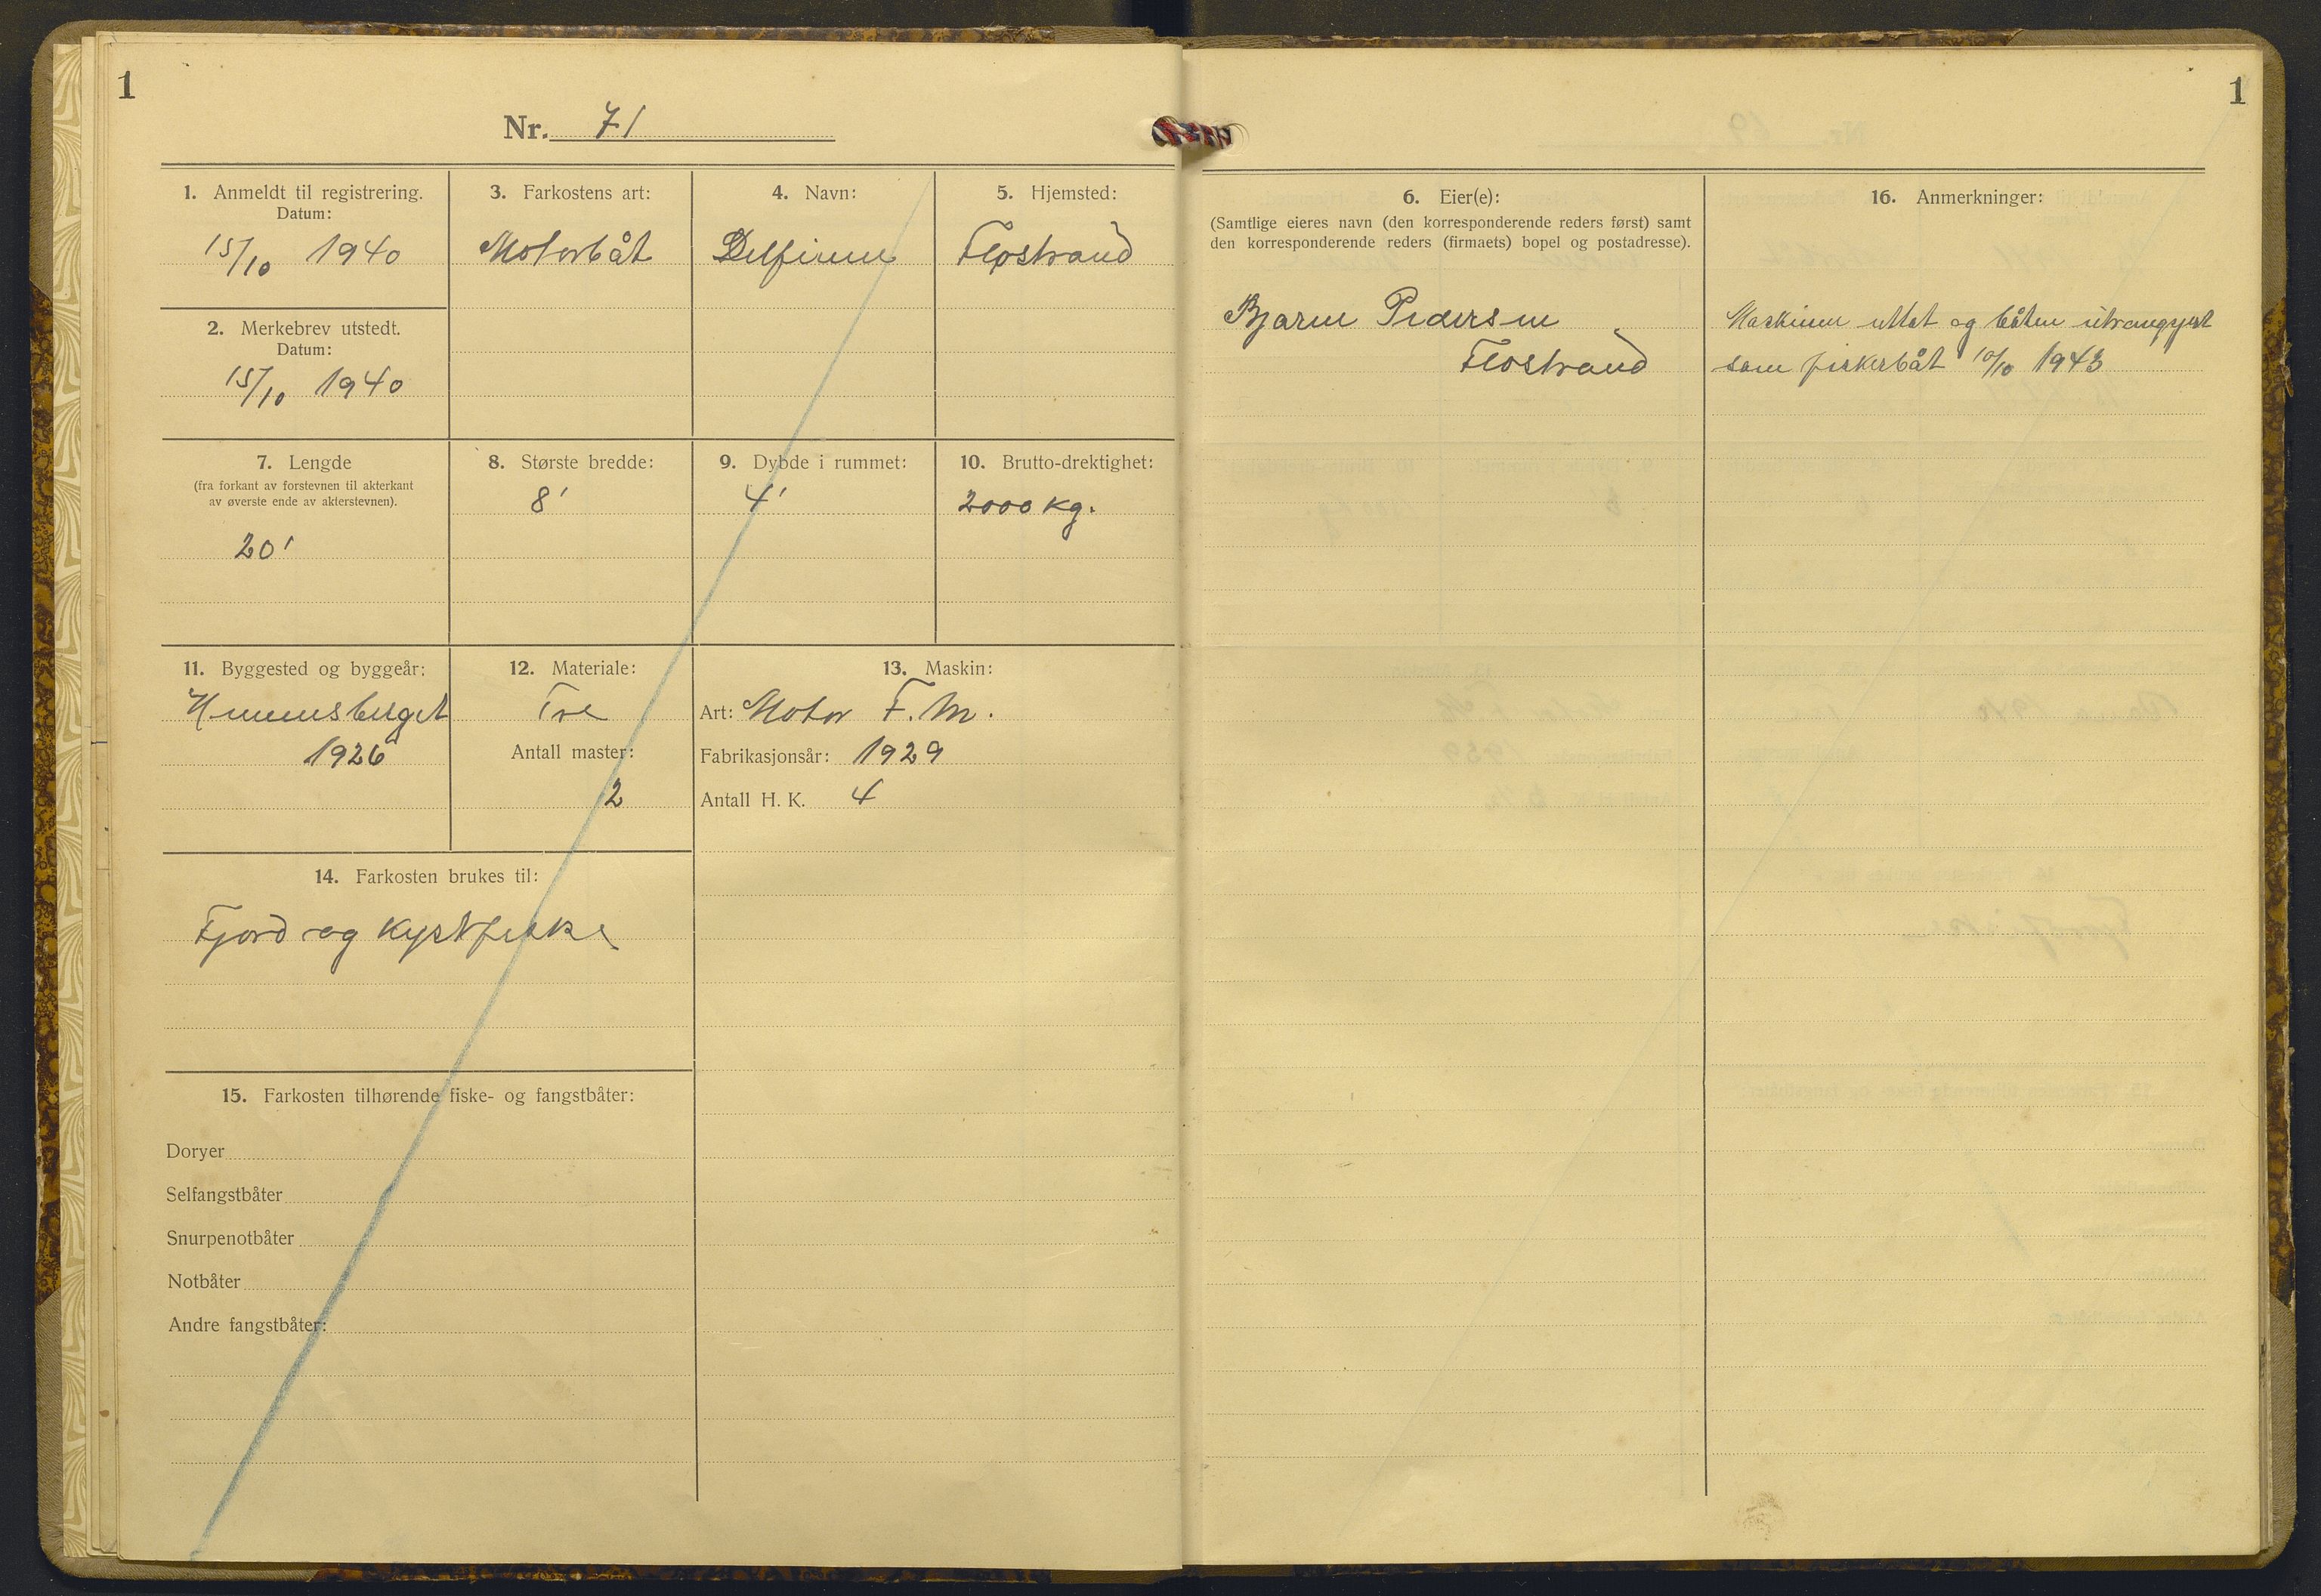 1
Nr. 71
1. Anmeldt til registrering.
Datum:
15/10 1940
2. Merkebrev utstedt.
Datum:
15/10 1940
3. Farkostens art:
Motorbåt
4. Navn:
Delfinen
5. Hjemsted:
Flostrand
7. Lengde
(fra forkant av forstevnen til akterkant
av øverste ende av akterstevnen).
20'
8. Største bredde:
8'
9. Dybde i rummet:
4'
10. Brutto-drektighet:
2000 kg.
11. Byggested og byggeår:
Hemnesberget
1926
12. Materiale:
Tre
Antall master:
2
13. Maskin:
Art: Motor F. M.
Fabrikasjonsår: 1929
Antall H. K. 4
14. Farkosten brukes til:
Fjord og Kystfiske
15. Farkosten tilhørende fiske- og fangstbåter:
Doryer
Selfangstbåter
Snurpenotbåter
Notbåter
Andre fangstbåter:
1
6. Eier(e):
(Samtlige eieres navn (den korresponderende reders først) samt
den korresponderende reders (firmaets) bopel og postadresse).
Bjarne Pedersen
Flostrand
16. Anmerkninger:
Maskinen uttat og båten utrangjert
som fiskerbåt 10/10 1943